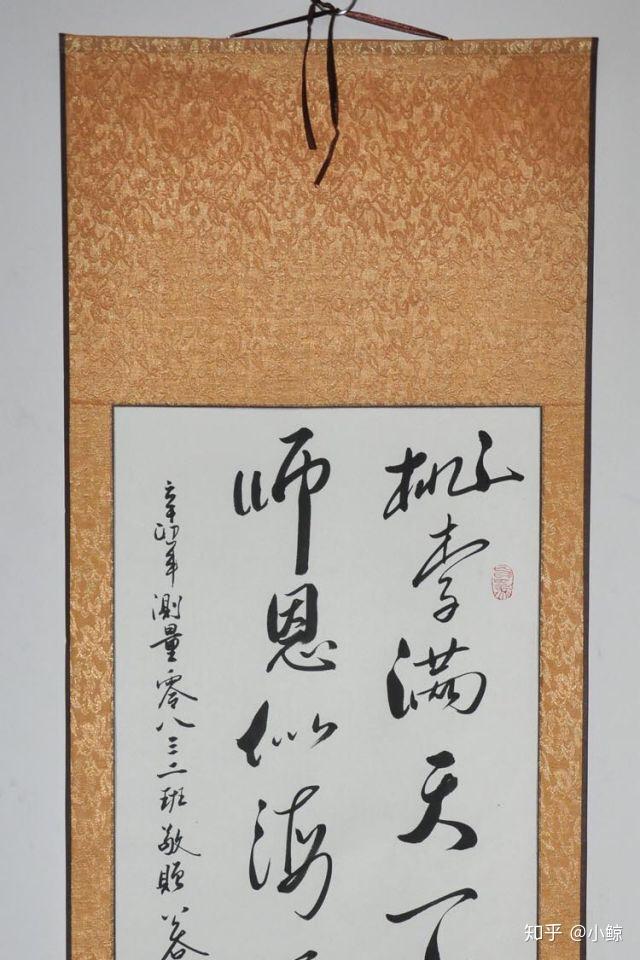 桃李满天下
师恩似海
辛卯年 测量零八三二班敬赠
知乎 @小鲸